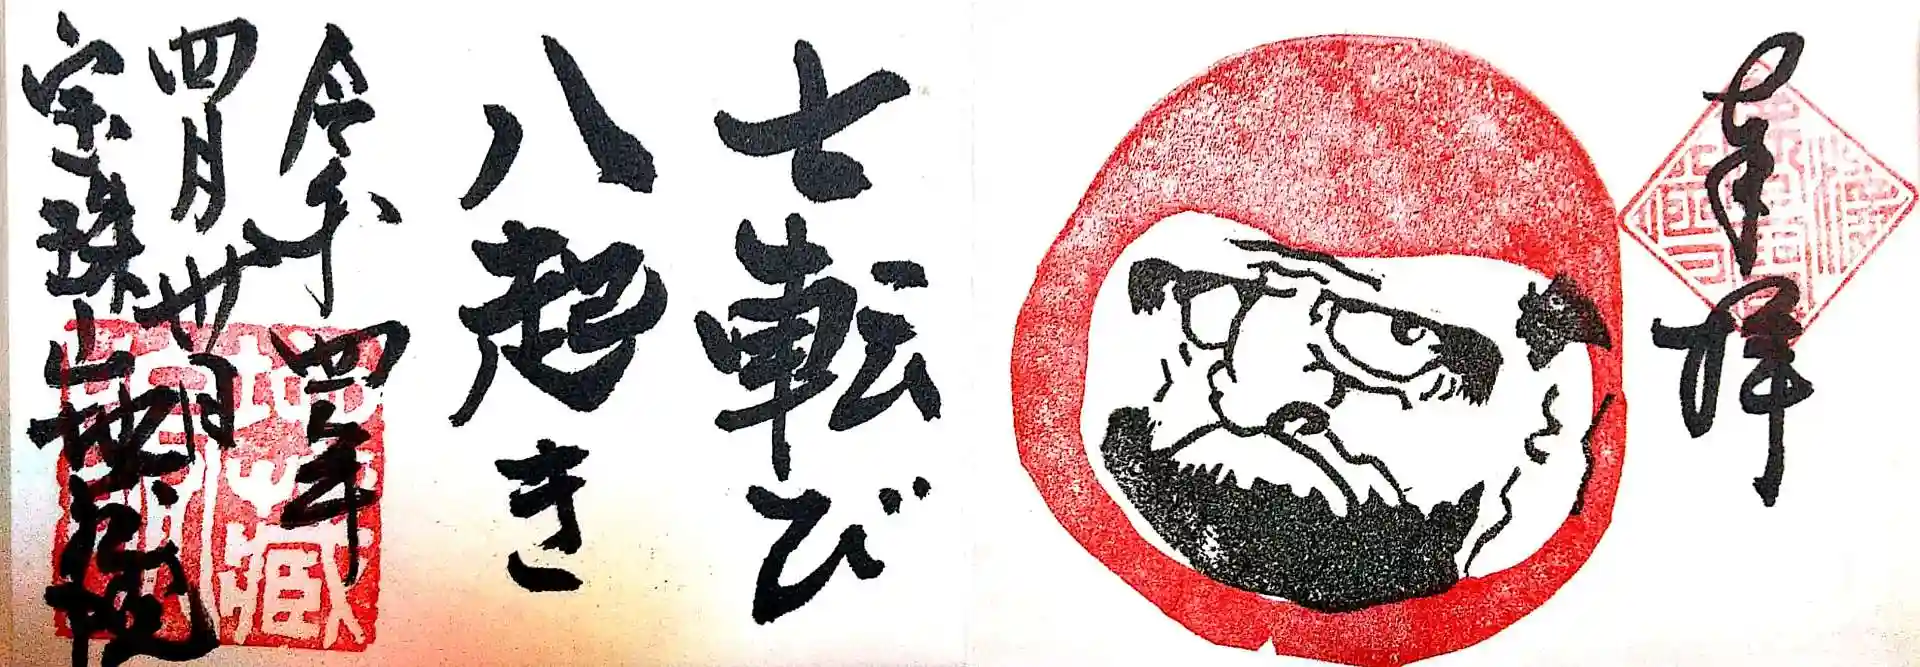 奉拝
七転び
八起き
令和四年
四月卅日
宝珠山地蔵院
地藏